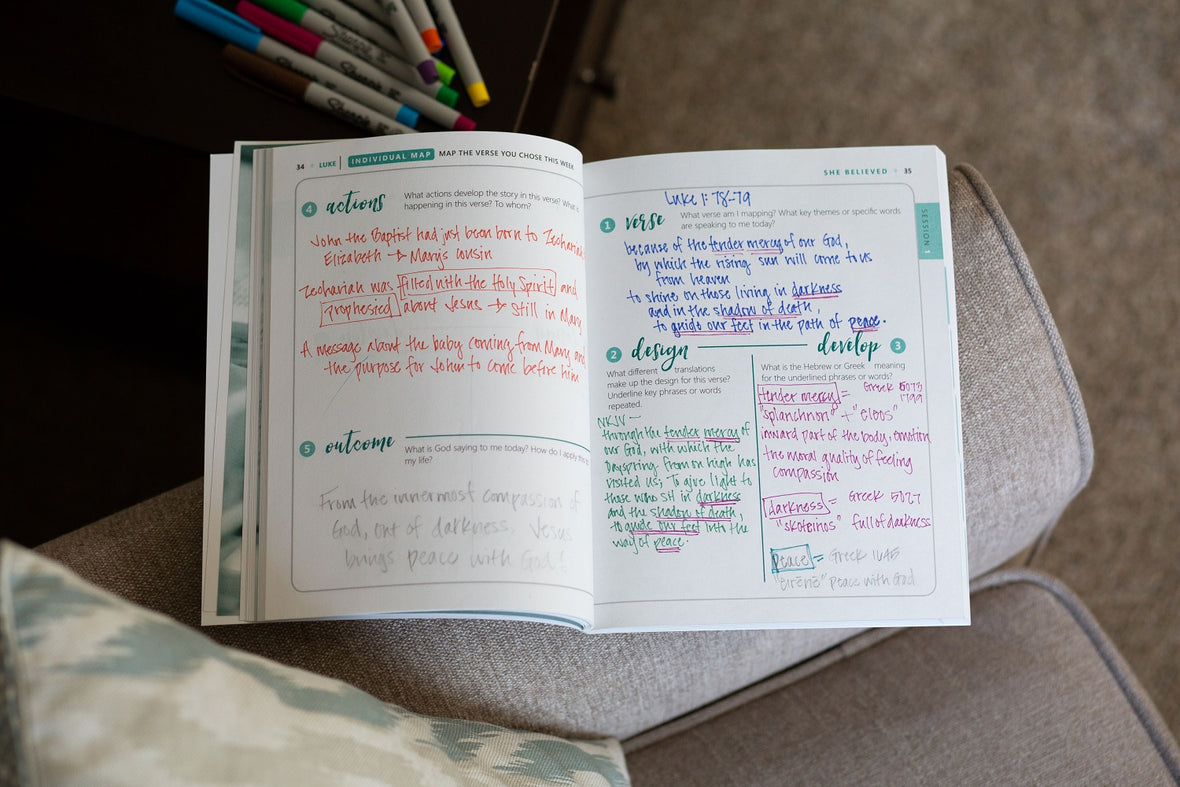 Sharpie
Sharpie
Sharpie
34 • LUKE | INDIVIDUAL MAP MAP THE VERSE YOU CHOSE THIS WEEK
4 actions
What actions develop the story in this verse? What is
happening in this verse? To whom?
John the Baptist had just been born to Zechariah
Elizabeth → Mary's cousin
Zechariah was filled with the Holy Spirit and
prophesied about Jesus → still in Mary
A message about the baby coming from Mary and
the purpose for John to come before him
5 outcome
What is God saying to me today? How do I apply this to
my life?
From the innermost compassion of
God, out of darkness, Jesus
brings peace with God!
SHE BELIEVED • 35
SESSION 1
Luke 1:78-79
1 verse
What verse am I mapping? What key themes or specific words
are speaking to me today?
because of the tender mercy of our God,
by which the rising sun will come to us
from heaven
to shine on those living in darkness
and in the shadow of death,
to guide our feet in the path of peace.
2 design
What different translations
make up the design for this verse?
Underline key phrases or words
repeated.
NKJV —
through the tender mercy of
our God, with which the
Dayspring from on high has
visited us; To give light to
those who sit in darkness
and the shadow of death,
to guide our feet into the
way of peace.
develop 3
What is the Hebrew or Greek meaning
for the underlined phrases or words?
tender mercy = Greek
1799
"splanchnon" + "eleos"
inward part of the body, emotion
the moral quality of feeling
compassion
darkness = Greek
"skoteinos" full of darkness
peace = Greek 1645
"eirēnē" peace with God